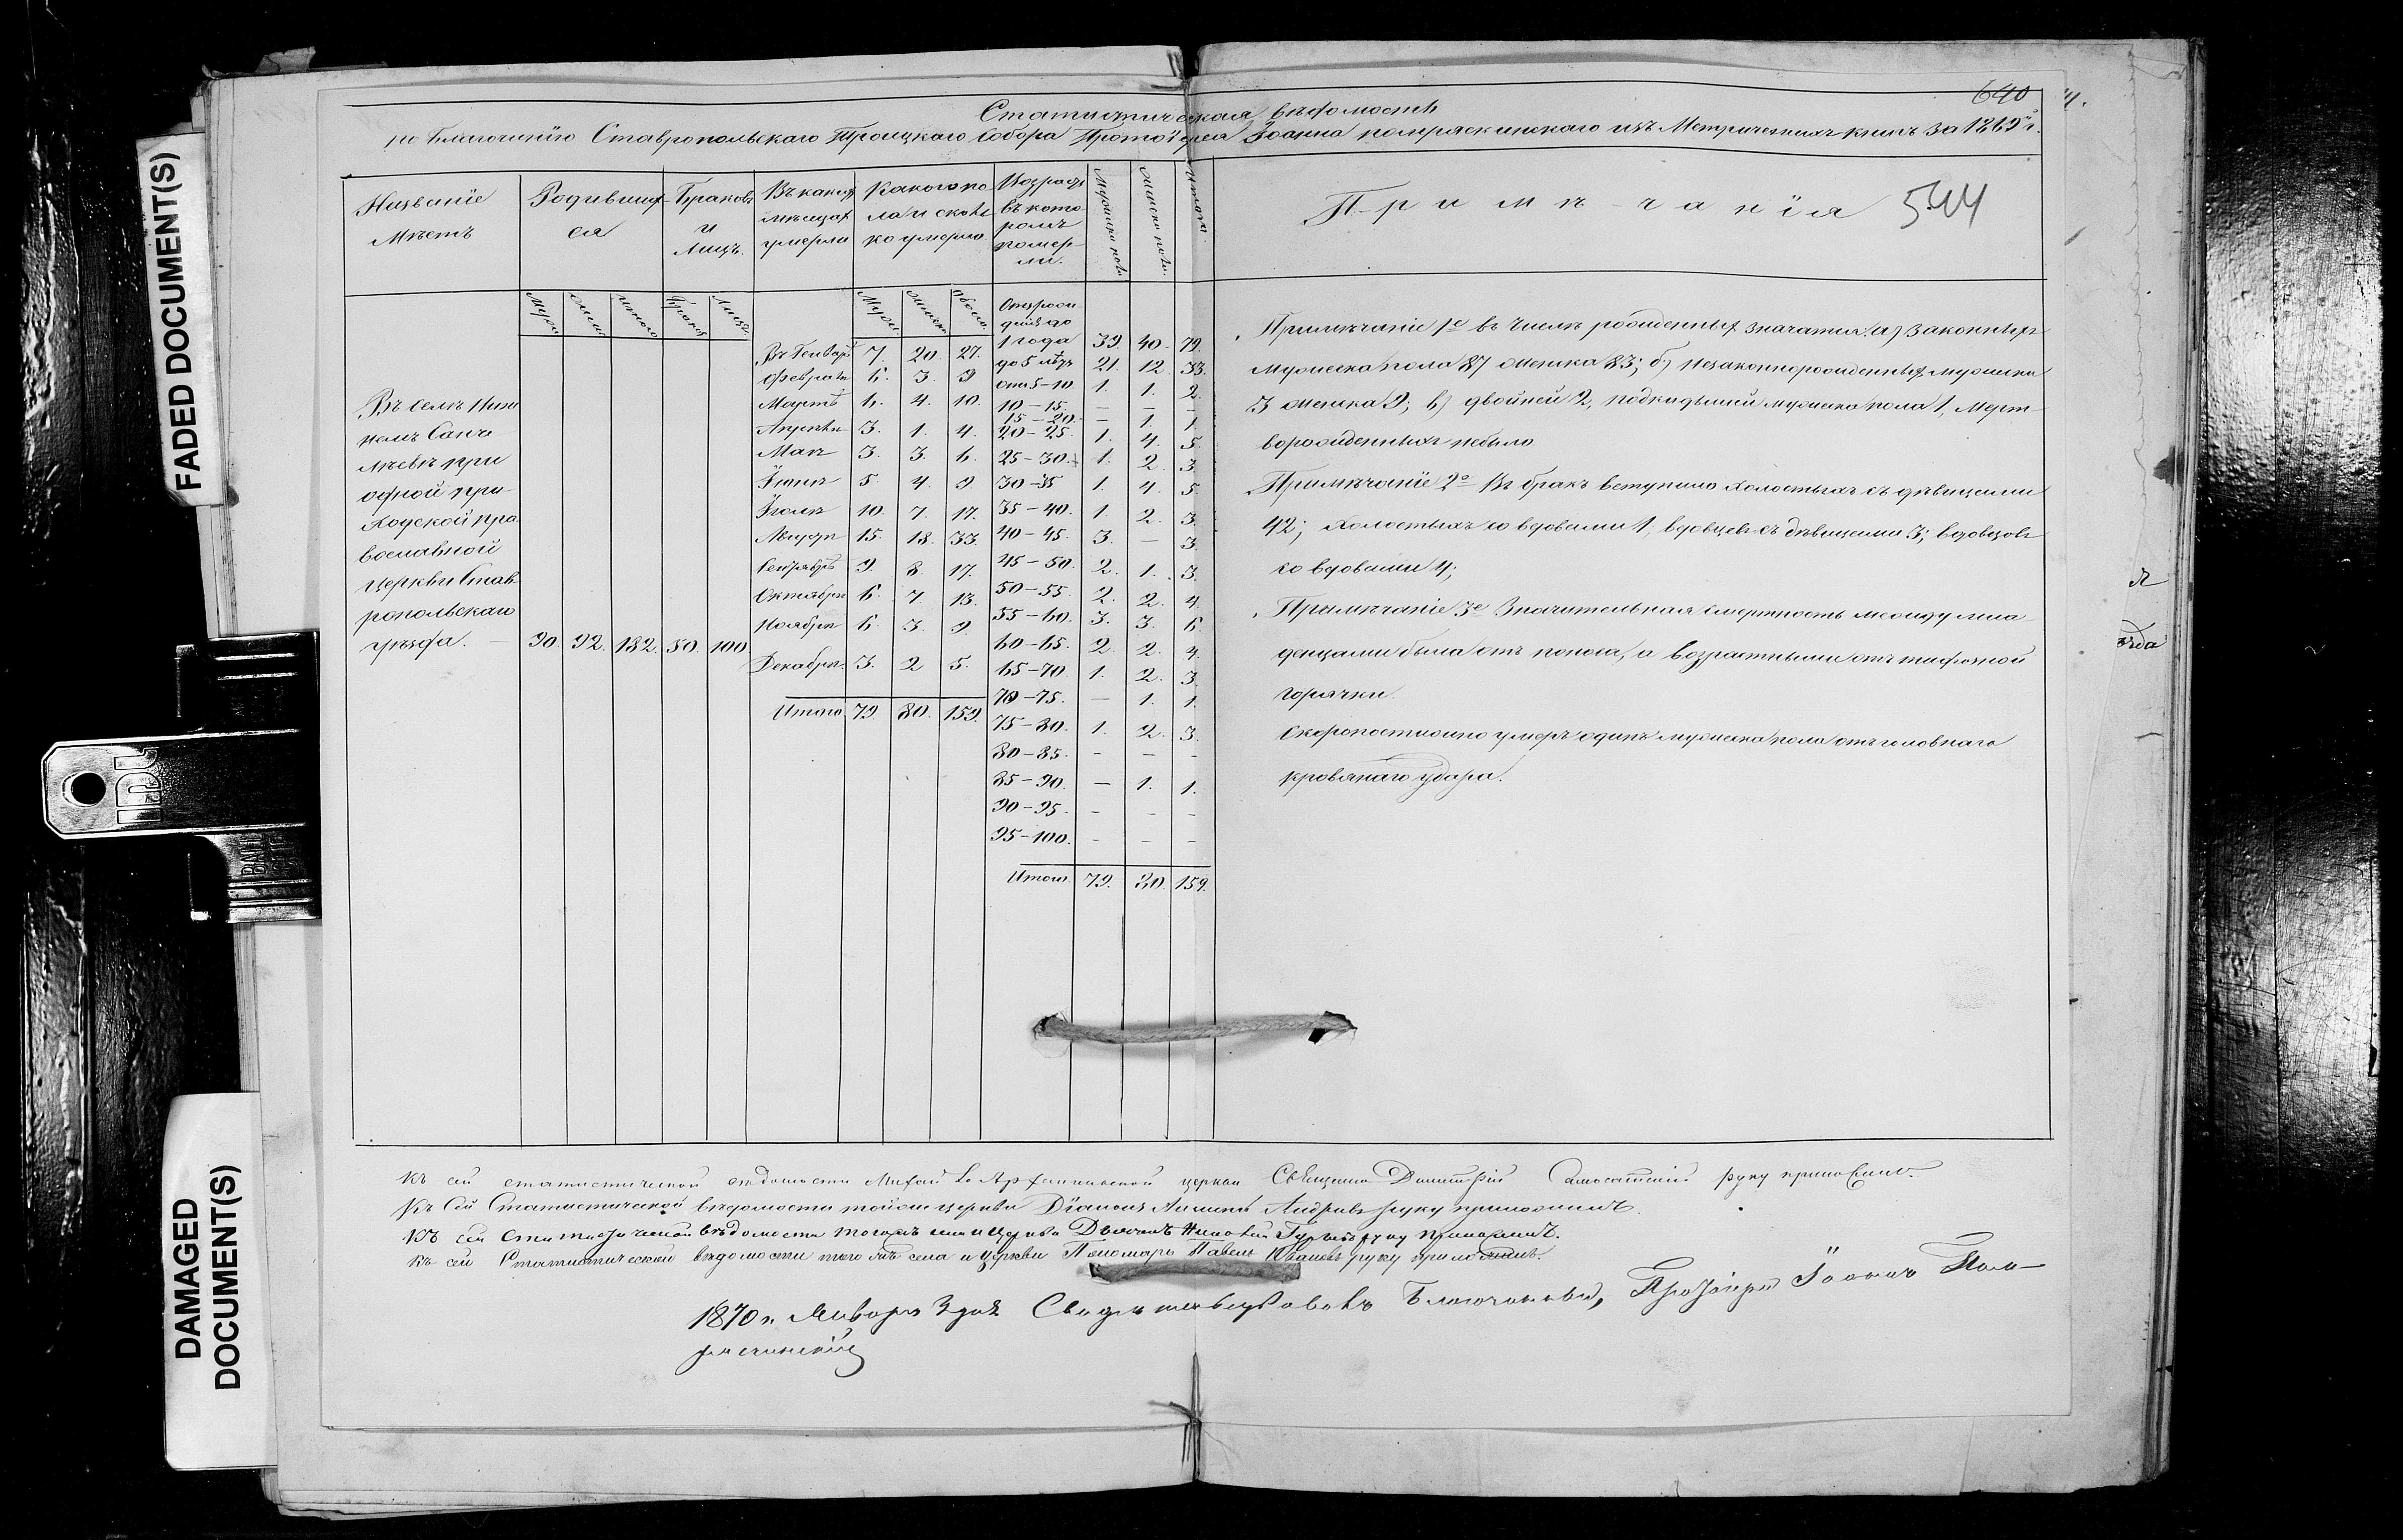 640
Статистическая вѣдомость
по благочинію Ставропольскаго Троицкаго Собора Протоіерея Іоанна Помряскинскаго изъ Метрическихъ книгъ за 1869й г.
Названіе Мѣстъ
Родившихся
Браковъ и Лицъ.
Въ какихъ мѣсяцахъ умерли
Какого пола и сколько умерло
Возрастъ въ которомъ померли.
Мужеска пола
Женска пола.
Итого.
Примѣчанія 544
Муж. Женс. Итого Браков. Лицъ. Муж. Женск. Обоего.
Отъ рожденія до
1 года 39. 40. 79.
до 5 лѣтъ 21. 12. 33.
отъ 5-10. 1. 1. 2.
10-15. – – –
15-20. – 1. 1.
20-25. 1. 4. 5.
25-30. 1. 2. 3.
30-35 1. 4. 5.
35-40. 1. 2. 3.
40-45. 3. – 3.
45-50. 2. 1. 3.
50-55. 2. 2. 4.
55-60. 3. 3. 6.
60-65. 2. 2. 4.
65-70. 1. 2. 3.
70-75. – 1. 1.
75-80. 1. 2. 3.
80-85. – – –
85-90. – 1. 1.
90-95. – – –
95-100. – – –
Итого. 79. 80. 159.
Въ Генварѣ 7. 20. 27.
Февралѣ 6. 3. 9
Мартѣ 6. 4. 10.
Апрѣлѣ 3. 1. 4.
Маѣ 3. 3. 6.
Іюнѣ 5. 4. 9
Іюлѣ 10. 7. 17.
Августѣ 15. 18. 33.
Сентябрѣ 9. 8. 17.
Октябрѣ 6. 7. 13.
Ноябрѣ 6. 3. 9.
Декабрѣ. 3. 2 5.
Итого. 79. 80. 159.
Въ селѣ Ниж
немъ Санче
лѣевѣ при
одной при-
ходской пра
вославной
церкви Став
ропольскаго
уѣзда. – 90. 92. 182. 50. 100.
Примѣчаніе 1е въ числѣ рожденныхъ значатся: а) законныхъ
мужеска пола 87 женска 83; б) незаконнорожденныхъ мужеска
3 женска 9; в) двойней 2, подкидышей мужеска пола 1, Мерт-
ворожденныхъ небыло
Примѣчаніе 2е Въ бракъ вступило холостыхъ съ дѣвицами
42; холостыхъ со вдовами 1, вдовцевъ съ дѣвицами 3; вдовцовъ
со вдовами 4;
Примѣчаніе 3е Значительная смертность между мла-
денцами была отъ поноса, а возрастными отъ тифозной
горячки.
Скоропостижно умеръ одинъ мужеска пола отъ головнаго
кровянаго удара.
Къ сей статистической вѣдомости Михайло Архангельской церкви Священникъ Димитрій руку приложилъ.
Къ Сей Статистической вѣдомости тойже церкви Діаконъ руку приложилъ.
Къ сей статистической вѣдомости тогожъ села и церкви Дьячекъ Николай Гурьевъ руку приложилъ.
Къ сей Статистической вѣдомости того жъ села и церкви Пономарь Павелъ Ивановъ руку приложилъ.
1870 г. Января 3 дня Свидѣтельствовалъ Благочинный, Протоіерей Іоаннъ Пом-
ряскинскій
FADED DOCUMENT(S)
DAMAGED
DOCUMENT(S)